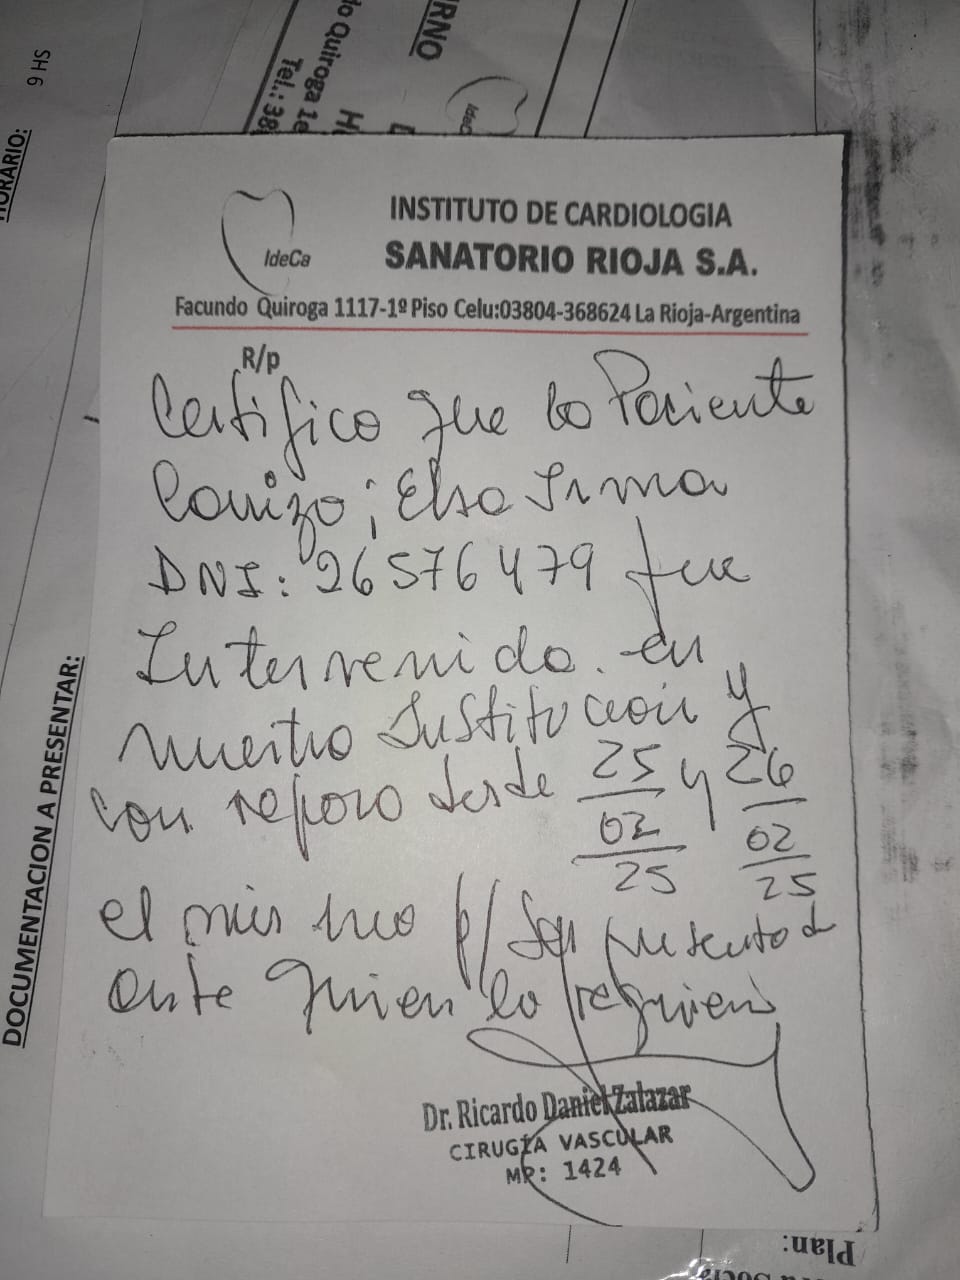 HORARIO:
9 HS
DOCUMENTACION A PRESENTAR:
do Quiroga
Tel.: 38
RNO
IdeCa
INSTITUTO DE CARDIOLOGIA
SANATORIO RIOJA S.A.
Facundo Quiroga 1117-1º Piso Celu:03804-368624 La Rioja-Argentina
R/p
Certifico que la Paciente
; Elsa Irma
DNI: 26576479 fue
Intervenida en
nuestra Institucion y
con reposo desde 25/02/25 y 26/02/25
el mismo p/ Ser presentado
ante quien lo requiera
Dr. Ricardo Daniel Zalazar
CIRUGÍA VASCULAR
MP: 1424
Plan: